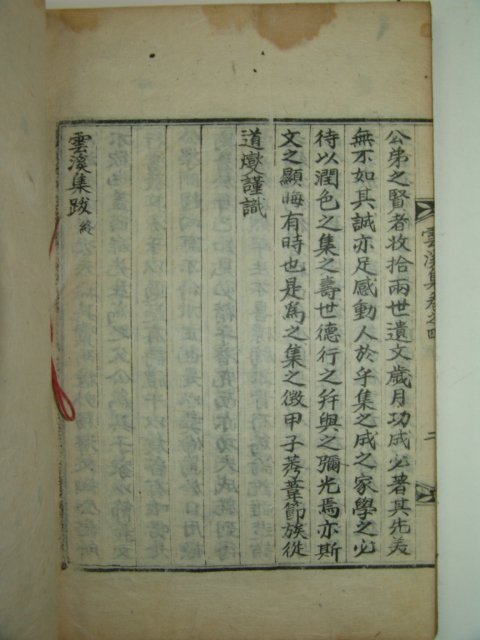 公弟之賢者收拾兩世遺文歲月功成必著其先美
無不如其誠亦足感動人於乎集之成之家學之必
待以潤色之集之壽世德行之幷與之彌光焉亦斯
文之顯晦有時也是爲之集之徵甲子菶葦節族從
道燮謹識
雲溪集跋 終
雲溪集卷之四
二